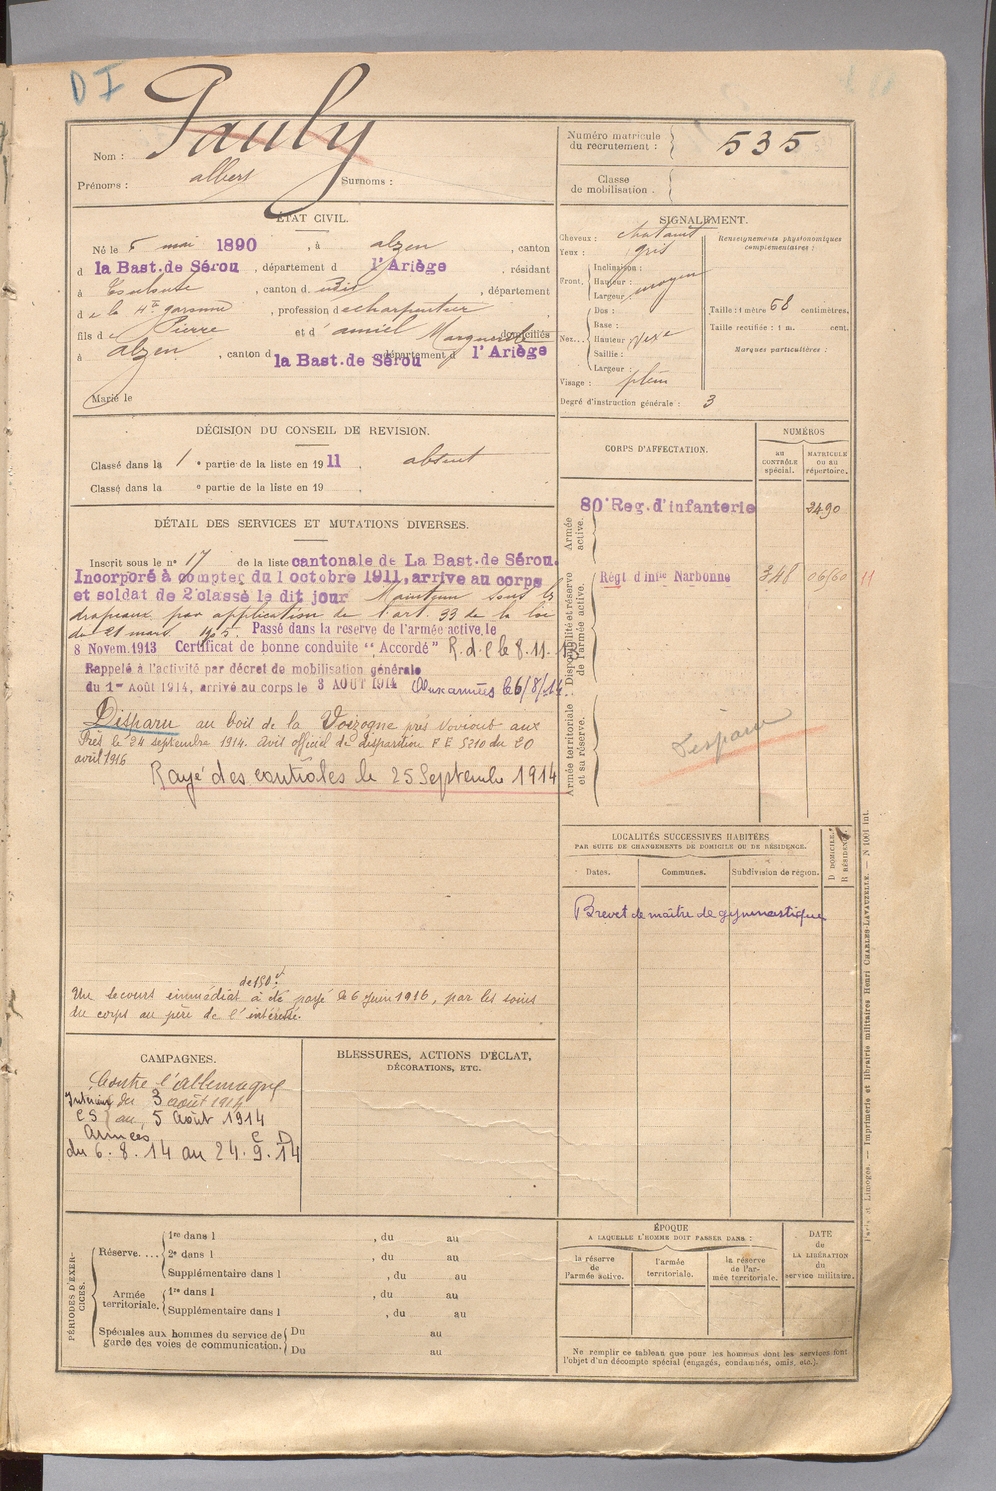 D I
Nom : Pauly
Prénoms : albert Surnoms :
Numéro matricule
du recrutement : 535
Classe
de mobilisation .
ÉTAT CIVIL.
Né le 5 mai 1890 , à alzen , canton
d la Bast. de Sérou , département d l'Ariège , résidant
à Toulouse , canton d udit , département
d e la Hte garonne , profession d e charpentier
fils d e Pierre et d' amiel Marguerite domiciliés
à alzen , canton d la Bast. de Sérou département d l'Ariège
Marié le
SIGNALEMENT.
Cheveux : chatain
Yeux : gris
Front, Inclinaison :
Hauteur : moyen
Largeur :
Nez... Dos :
Base :
Hauteur
Saillie :
Largeur :
Visage : plein
Degré d'instruction générale : 3
Renseignements physionomiques
complémentaires :
Taille : 1 mètre 68 centimètres.
Taille rectifiée : 1 m. cent.
Marques particulières :
DÉCISION DU CONSEIL DE REVISION.
Classé dans la 1 e partie de la liste en 1911 , absent
Classé dans la e partie de la liste en 19 ,
CORPS D'AFFECTATION.
NUMÉROS
au
CONTRÔLE
spécial.
MATRICULE
ou au
répertoire.
Armée
active.
80e Reg. d'infanterie 2490
Disponibilité et réserve
de l'armée active.
Régt d'infie Narbonne 348 06/60 11
Armée territoriale
et sa réserve.
Disparu
DÉTAIL DES SERVICES ET MUTATIONS DIVERSES.
Inscrit sous le n° 17 de la liste cantonale de La Bast. de Sérou.
Incorporé à compter du 1 octobre 1911, arrive au corps
et soldat de 2e classe le dit jour Maintenu sous les
drapeaux par application de l'art. 33 de la loi
du 21 mars 1905. Passé dans la reserve de l'armée active, le
8 Novem. 1913 Certificat de bonne conduite "Accordé" R. d. C le 8.11.13
Rappelé à l'activité par décret de mobilisation générale
du 1er Août 1914, arrivé au corps le 3 AOUT 1914 Aux armées le 6/8/14.
Disparu au bois de la Voizogne près Vovious aux
Près le 24 septembre 1914. Avis officiel de disparition F E 5210 du 20
avril 1916
Rayé des contrôles le 25 Septembre 1914
Un secours immédiat de 150f a été payé le 6 Juin 1916, par les soins
du corps au père de l'intéressé.
LOCALITÉS SUCCESSIVES HABITÉES
PAR SUITE DE CHANGEMENTS DE DOMICILE OU DE RÉSIDENCE.
Dates. Communes. Subdivision de région.
D DOMICILE.
R RÉSIDENCE
Brevet de maître de gymnastique
CAMPAGNES.
Contre l'Allemagne
Intérieur du 3 août 1914
CS au 5 Août 1914
Armées C D
du 6.8.14 au 24.9.14
BLESSURES, ACTIONS D'ÉCLAT,
DÉCORATIONS, ETC.
PÉRIODES D'EXER-
CICES.
Réserve.... 1re dans l , du au
2e dans l , du au
Supplémentaire dans l , du au
Armée
territoriale. 1re dans l , du au
Supplémentaire dans l , du au
Spéciales aux hommes du service de
garde des voies de communication. Du au
Du au
ÉPOQUE
A LAQUELLE L'HOMME DOIT PASSER DANS :
la réserve
de
l'armée active.
l'armée
territoriale.
la réserve
de l'ar-
mée territoriale.
DATE
de
LA LIBÉRATION
du
service militaire.
Ne remplir ce tableau que pour les hommes dont les services font
l'objet d'un décompte spécial (engagés, condamnés, omis, etc.).
Paris et Limoges. — Imprimerie et librairie militaires Henri CHARLES-LAVAUZELLE. — N 1001 int.